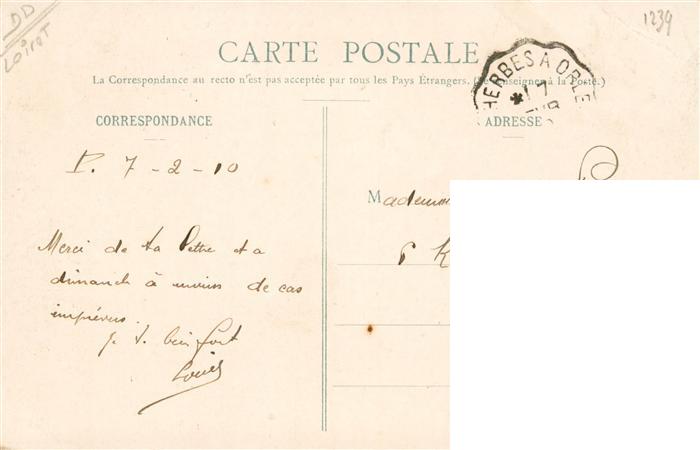 DD
Loiret
1239
CARTE POSTALE
La Correspondance au recto n'est pas acceptée par tous les Pays Étrangers. (Se renseigner à la Poste.)
HERBES A ORLE
* 1 7
CORRESPONDANCE
ADRESSE
P. 7-2-10
Mademoi
6 K
Merci de ta lettre et a
dimanch à moins de cas
imprévus.
je t. bien fort
Louis